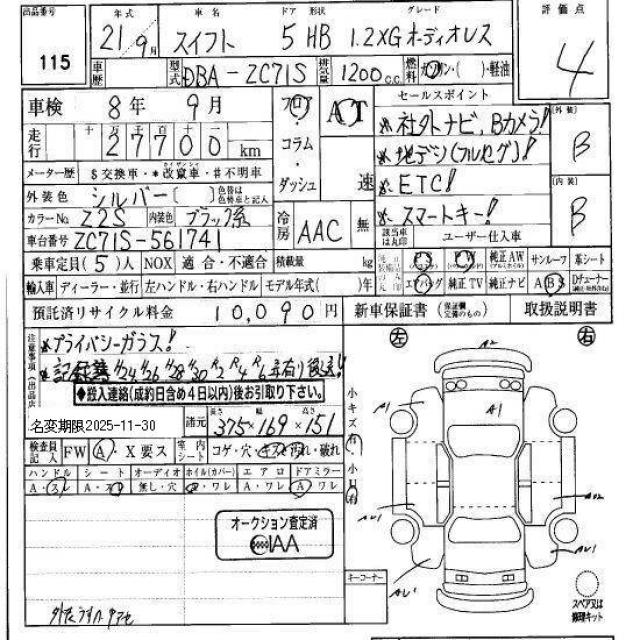 出品番号 年式 車名 ドア 形状 グレード 評価点
115 21年9月 スイフト 5 HB 1.2XGオーディオレス 4
車歴 型式 DBA-ZC71S 排気量 1200c.c. 燃料 ガソリン・( )・軽油
車検 8年 9月 フロア AT セールスポイント 外装 B
走行 十万千百十 27700 km コラム ※社外トナビ、Bカメラ!
メーター歴 $交換車・*改竄車・#不明車 ダッシュ 速 ※地デジ(フルセグ)!
外装色 シルバー( ) 色替は色替車と記入 ※ETC! 内装 B
カラーNo. Z2S 内装色 ブラック系 冷房 AAC 無 ※スマートキー!
車台番号 ZC71S-561741 該当車は丸印 ユーザー仕入車
乗車定員(5)人 NOX 適合・不適合 積載量 kg PS PW 純正AW サンルーフ 革シート
輸入車 ディーラー・並行 左ハンドル・右ハンドル モデル年式( )年 エアバッグ 純正TV 純正ナビ ABS Dチューナー
預託済リサイクル料金 10,090円 新車保証書 (保証欄交付のもの) 取扱説明書
注意事項(出品店 ※プライバシーガラス! 左 右
※記録簿
◆搬入連絡(成約日含め4日以内)後お引取り下さい。
名変期限2025-11-30 諸元 長さ 幅 高さ 375×169×151
検査員記入 FW A・X要ス 室内シート コゲ・穴・キズ・汚れ・破れ 小キズ有 小凹有
ハンドル シート オーディオ ホイル(カバー) エアロ ドアミラー
A・スレ A・ス 無し・穴 ・ワレ A・ワレ A・ワレ
A2
A1 A1
AU1 AU2
AU1 AU1
オークション査定済
JAAA
キーコーナー
スペア又は修理キット